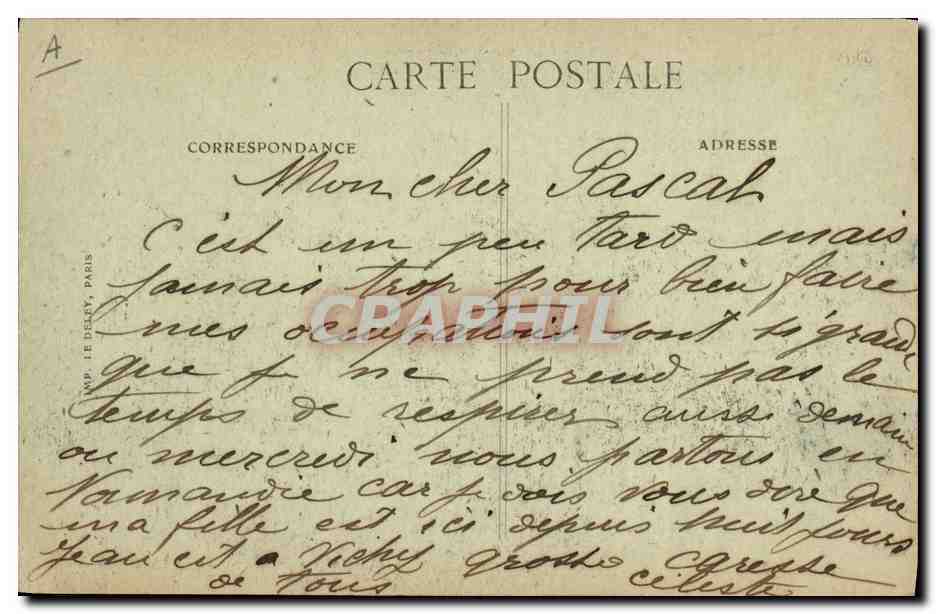 A
CARTE POSTALE
CORRESPONDANCE
ADRESSE
IMP. LE DELEY, PARIS
Mon cher Pascal
C'est un peu tard mais
jamais trop pour bien faire
mes occupations sont si grande
que je ne prend pas le
temps de respirer aussi demain
ou mercredi nous partons en
Normandie car je dois vous dire que
ma fille est ici depuis huit jours
Jean est a Vichy grosse caresse
de tous celeste
CPAPHIL